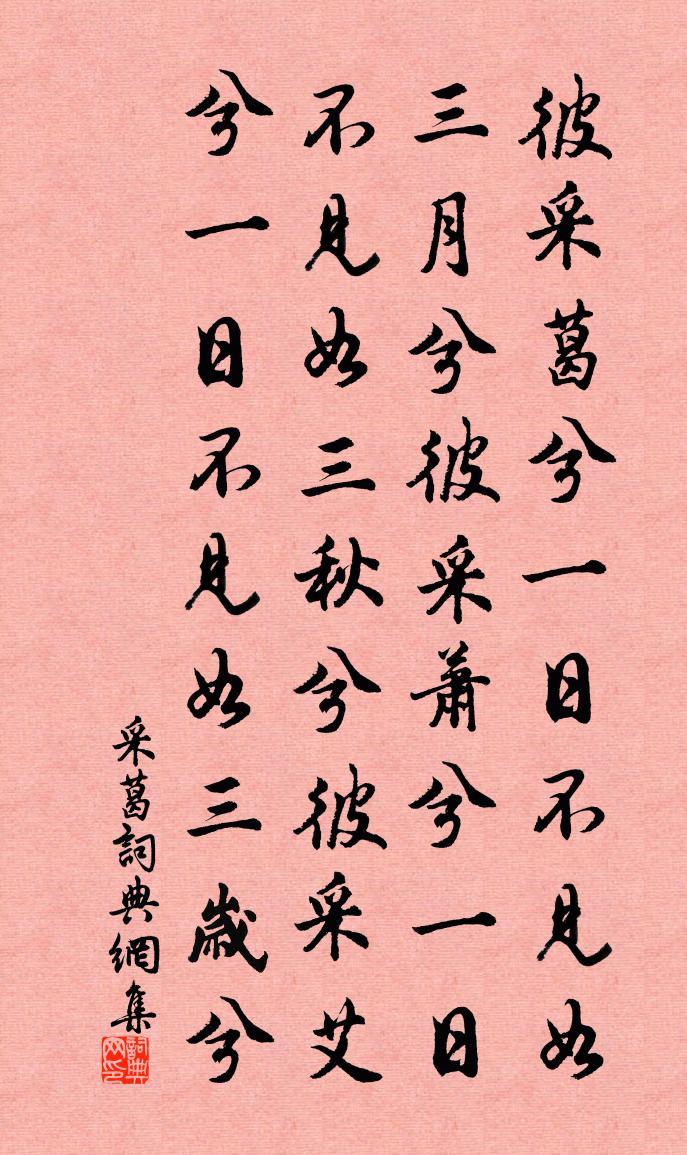 彼采葛兮一日不見如
三月兮彼采蕭兮一日
不見如三秋兮彼采艾
兮一日不見如三歲兮
采葛詞典網集
詞典网印